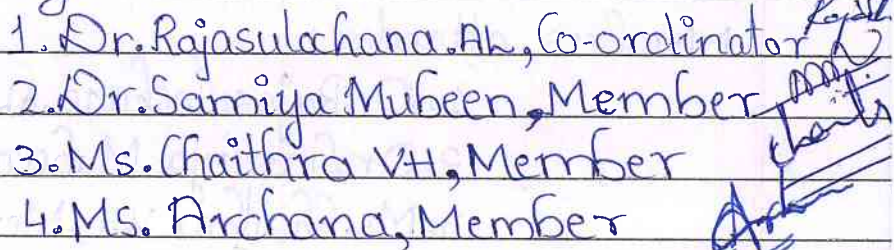 1. Dr. Rajasulochana. AL, Co-ordinator
2. Dr. Samiya Mubeen, Member
3. Ms. Chaithra VH, Member
4. Ms. Archana, Member